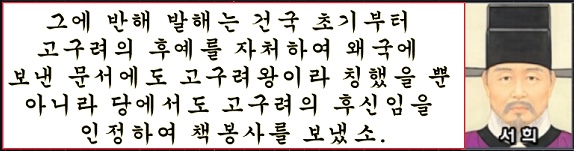 그에 반해 발해는 건국 초기부터
고구려의 후예를 자처하여 왜국에
보낸 문서에도 고구려왕이라 칭했을 뿐
아니라 당에서도 고구려의 후신임을
인정하여 책봉사를 보냈소.
서희